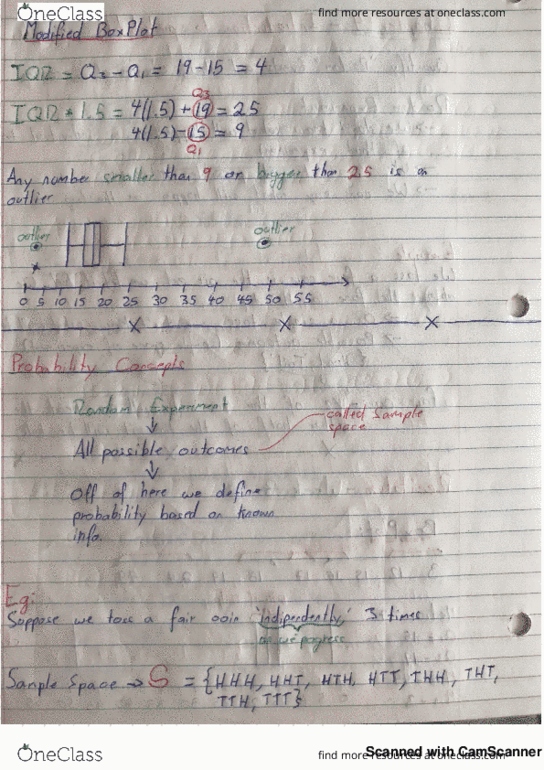 OneClass
find more resources at oneclass.com
Modified BoxPlot
IQR = Q3 - Q1 = 19 - 15 = 4
Q3
IQR * 1.5 = 4(1.5) + 19 = 25
4(1.5) - 15 = 9
Q1
Any number smaller than 9 or bigger than 25 is an
outlier
outlier
outlier
0 5 10 15 20 25 30 35 40 45 50 55
Probability Concepts
Random Experiment
called Sample
space
All possible outcomes
Off of here we define
probability based on known
info.
Eg:
Suppose we toss a fair coin 'indipendently' 3 times
Sample Space → S = {HHH, HHT, HTH, HTT, THH, THT,
TTH, TTT}
OneClass
find more resources at oneclass.com
Scanned with CamScanner